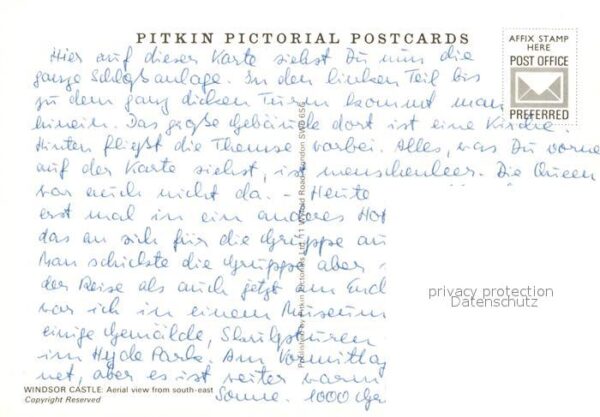 PITKIN PICTORIAL POSTCARDS
AFFIX STAMP
HERE
POST OFFICE
PREFERRED
Hier auf dieser Karte siehst Du nun die
ganze Schloßanlage. In den linken Teil bis
zu dem ganz dicken Turm kommt man
hinein. Das große Gebäude dort ist eine Kirche.
Hinten fließt die Themse vorbei. Alles, was Du vorne
auf der Karte siehst, ist menschenleer. Die Queen
war auch nicht da. – Heute
erst mal in ein anderes Hot
das an sich für die Gruppe au
Man schickte die Gruppe aber
der Reise als auch jetzt am End
war ich in einem Museum
einige Gemälde, Skulpturen
im Hyde Park. Am Vormittag
net, aber es ist weiter warm
Sonne. 1000 Ge
Published by Pitkin Pictorials Ltd, 11 Wyfold Road, London SW6 6SG
WINDSOR CASTLE: Aerial view from south-east
Copyright Reserved
privacy protection
Datenschutz